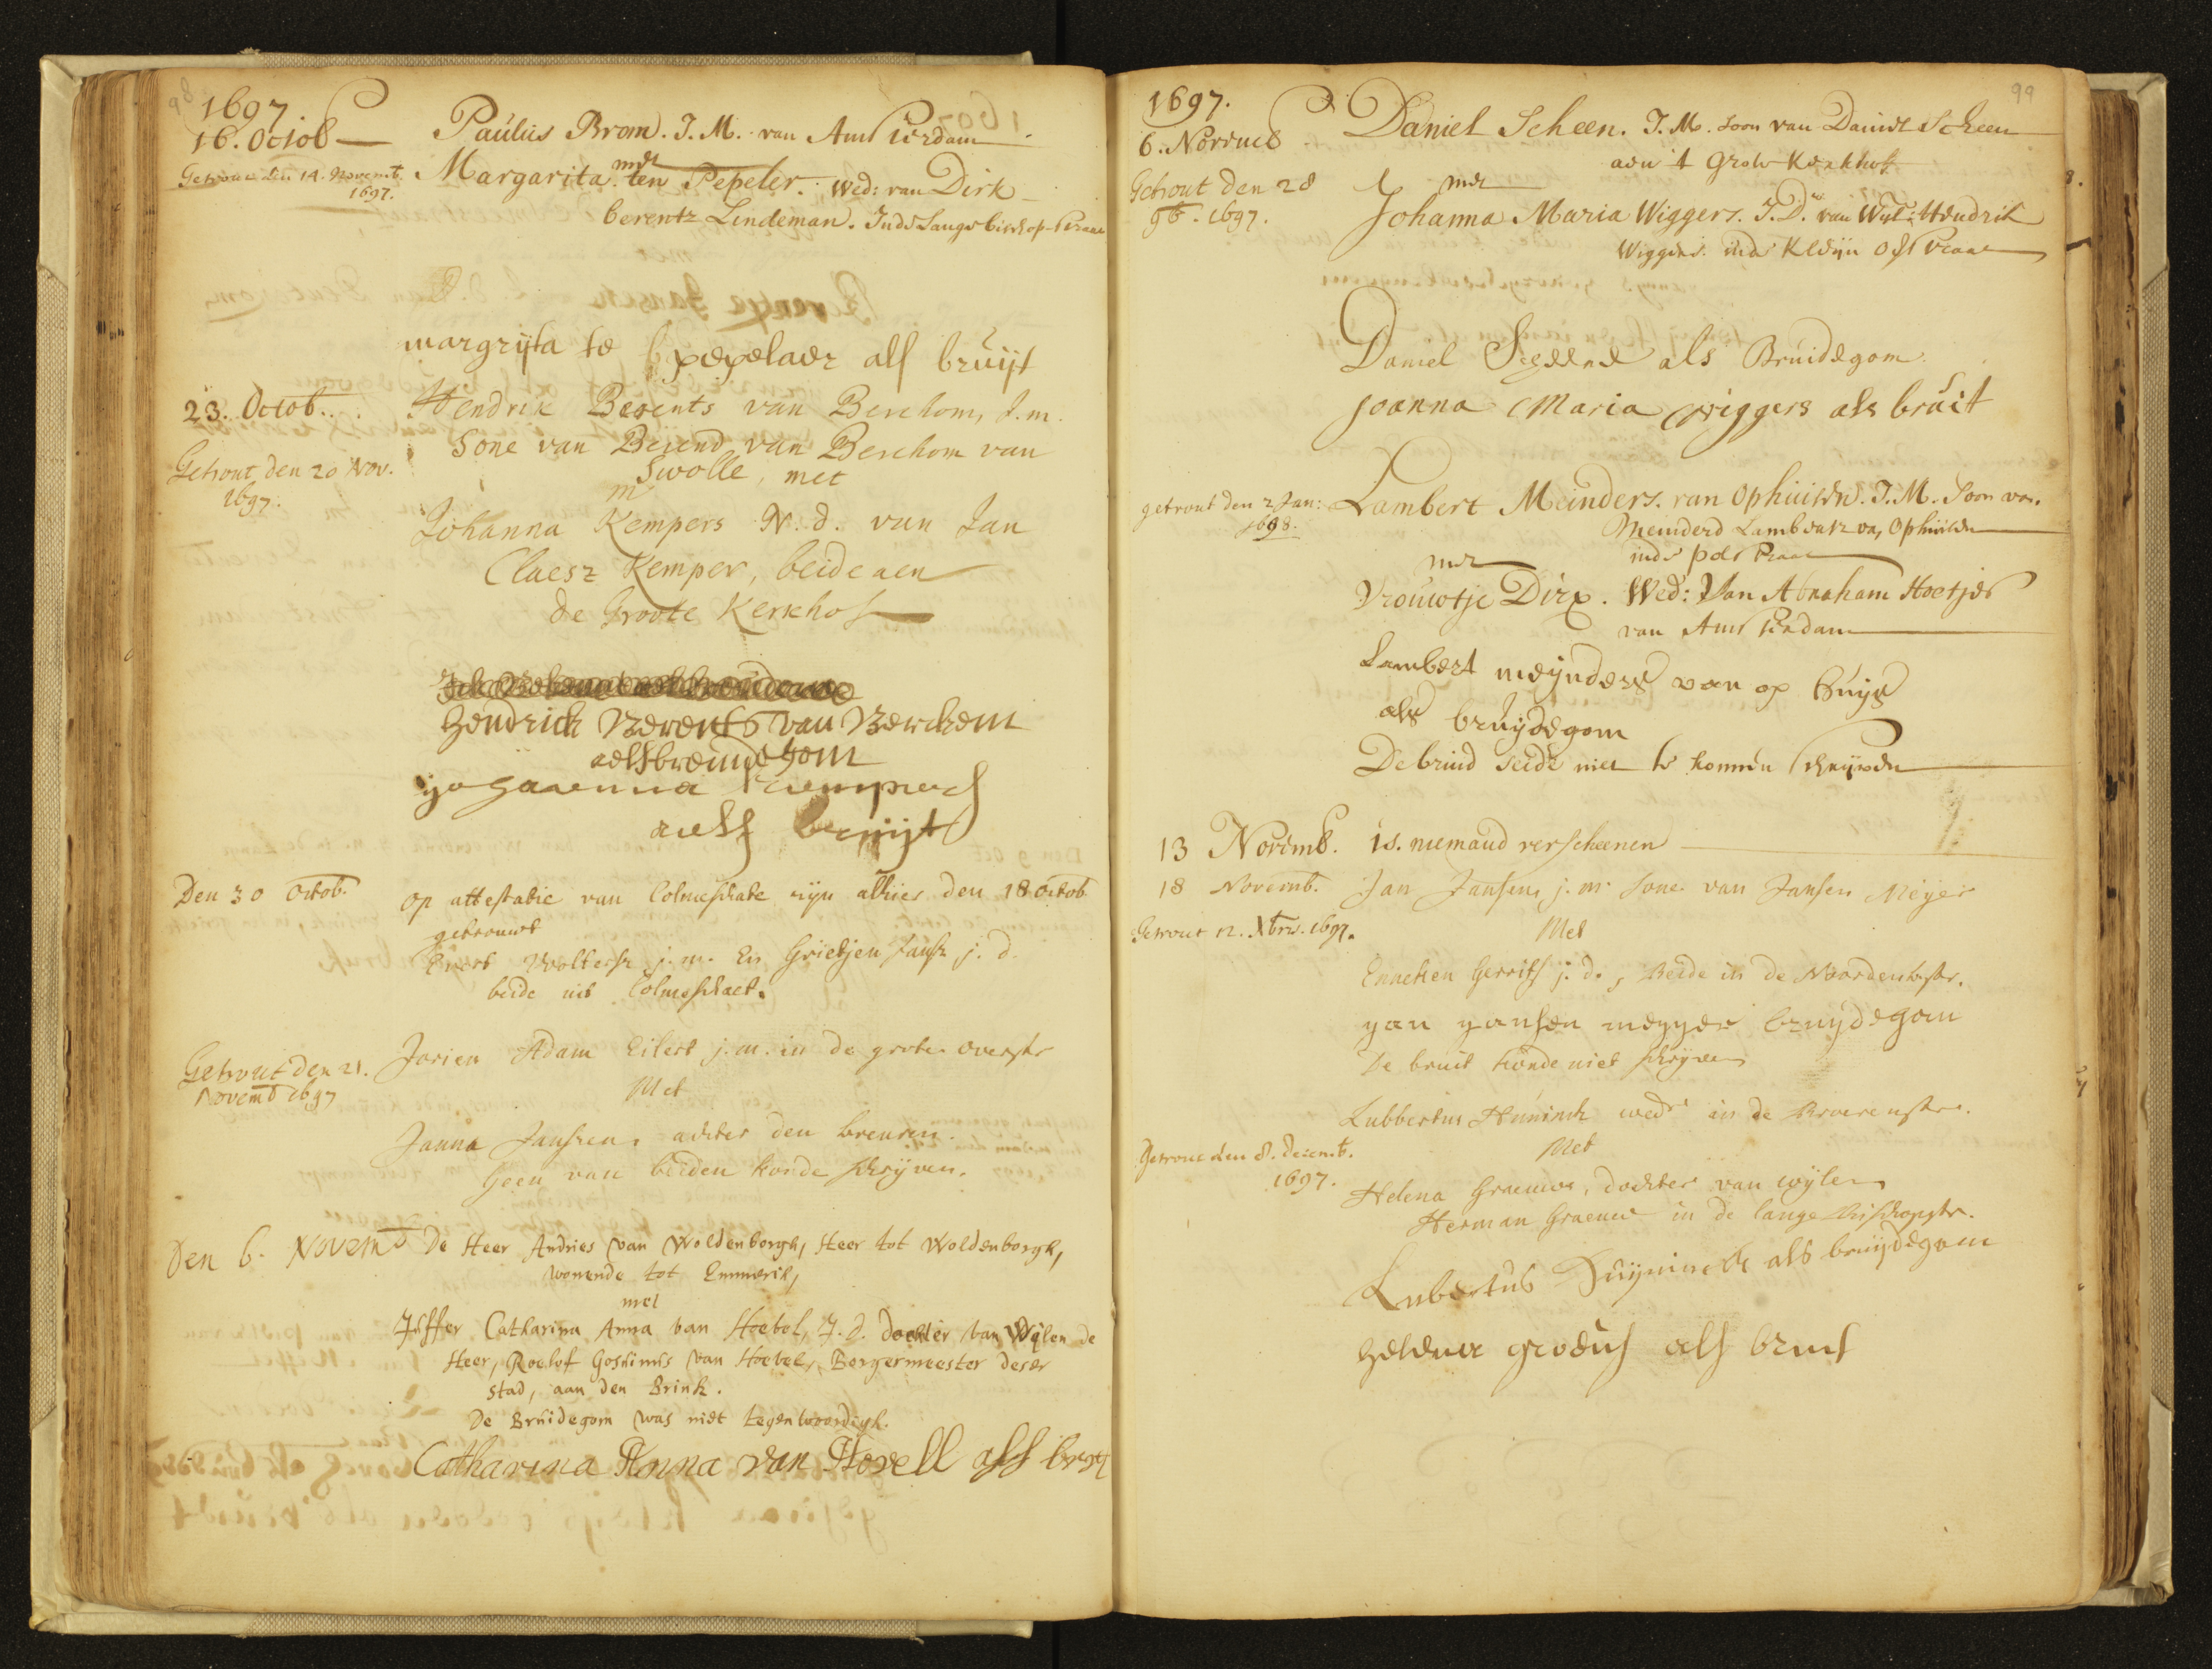 98
1697
16. Octob
Paulus Brom. J. M. van Amsterdam
Getrout den 14. Novemb.
1697.
met
Margarita ten Pepeler. Wed: van Dirk
berentz Lindeman. Inde Lange bisschop straat
margrijta te pepelaer als bruijt
23. Octob.
Hendrik Berents van Berchom, J.m.
Sone van Berend van Berchom van
Getrout den 20 Nov.
1697.
Swolle, met
Johanna Kempers N. d. van Jan
Claesz Kemper, beide aen
de Groote Kerkhof
Hendrick Berents van Berchem
aelsbreudegom
als bruijt
Den 30 Octob.
op attestatie van Colmeschate sijn alhier den 18 octob
getrouwt
Evert Woltersz j. m. En Grietjen Jansz j. d.
beide uit Colmeschaet.
Getrout den 21.
Novemb 1697
Jorien Adam Eilert j. m. in de grote overstr
Met
Janna Janssen, achter den breuren.
Geen van beiden konde schrijven.
Den 6. Novemb
De Heer Andries van Woldenborgh, Heer tot Woldenborgh,
wonende tot Emmerik,
met
Juffer Catharina Anna van Hoevel, J. d. dochter van Wijlen de
Heer, Roelof Gosuinus van Hoevel, Borgermeester deser
stad, aan den Brink.
De Bruidegom was niet tegenwoordigh.
Catharina Anna van Hovell als bruyt
99
1697.
6. Novemb
Daniel Scheen. J. M. soon van Daniel Scheen
aen 't Grote Kerkhof
Getrout den 28
9b. 1697.
met
Johanna Maria Wiggers. J. D. van Wyl: Hendrik
Wiggers inde Kleijn Overstraat
Daniel Scheene als Bruidegom
Joanna Maria Wiggers als bruit
getrout den 2 Jan:
1698.
Lambert Meinders. van Ophuisen. J. M. Soon van
Meinderd Lambertz van Ophuisen
inde polstraat
met
Vrouwtje Dirx. Wed: Van Abraham Hoetjes
van Amsterdam
Lambert meynders van op huys
als bruijdegom
De bruid seide niet te konnen schrijven
13 Novemb. is. niemand verscheenen
18 Novemb.
Jan Jansen j. m. Sone van Jansen Meijer
Getrout 12. Xbris. 1697.
Met
Enneken Gerrits j. d., Beide in de Noordenbstr.
yan yansen meyyer bruydegom
De bruit konde niet schrijven
Lubbertus Huninck wedr in de Broerenstr.
Getrout den 8. decemb.
1697.
Met
Helena Graeuwe, dochter van wijlen
Herman Graeuwe in de lange Bisschopstr.
Lubertus Huijninck als bruijdegom
als bruit